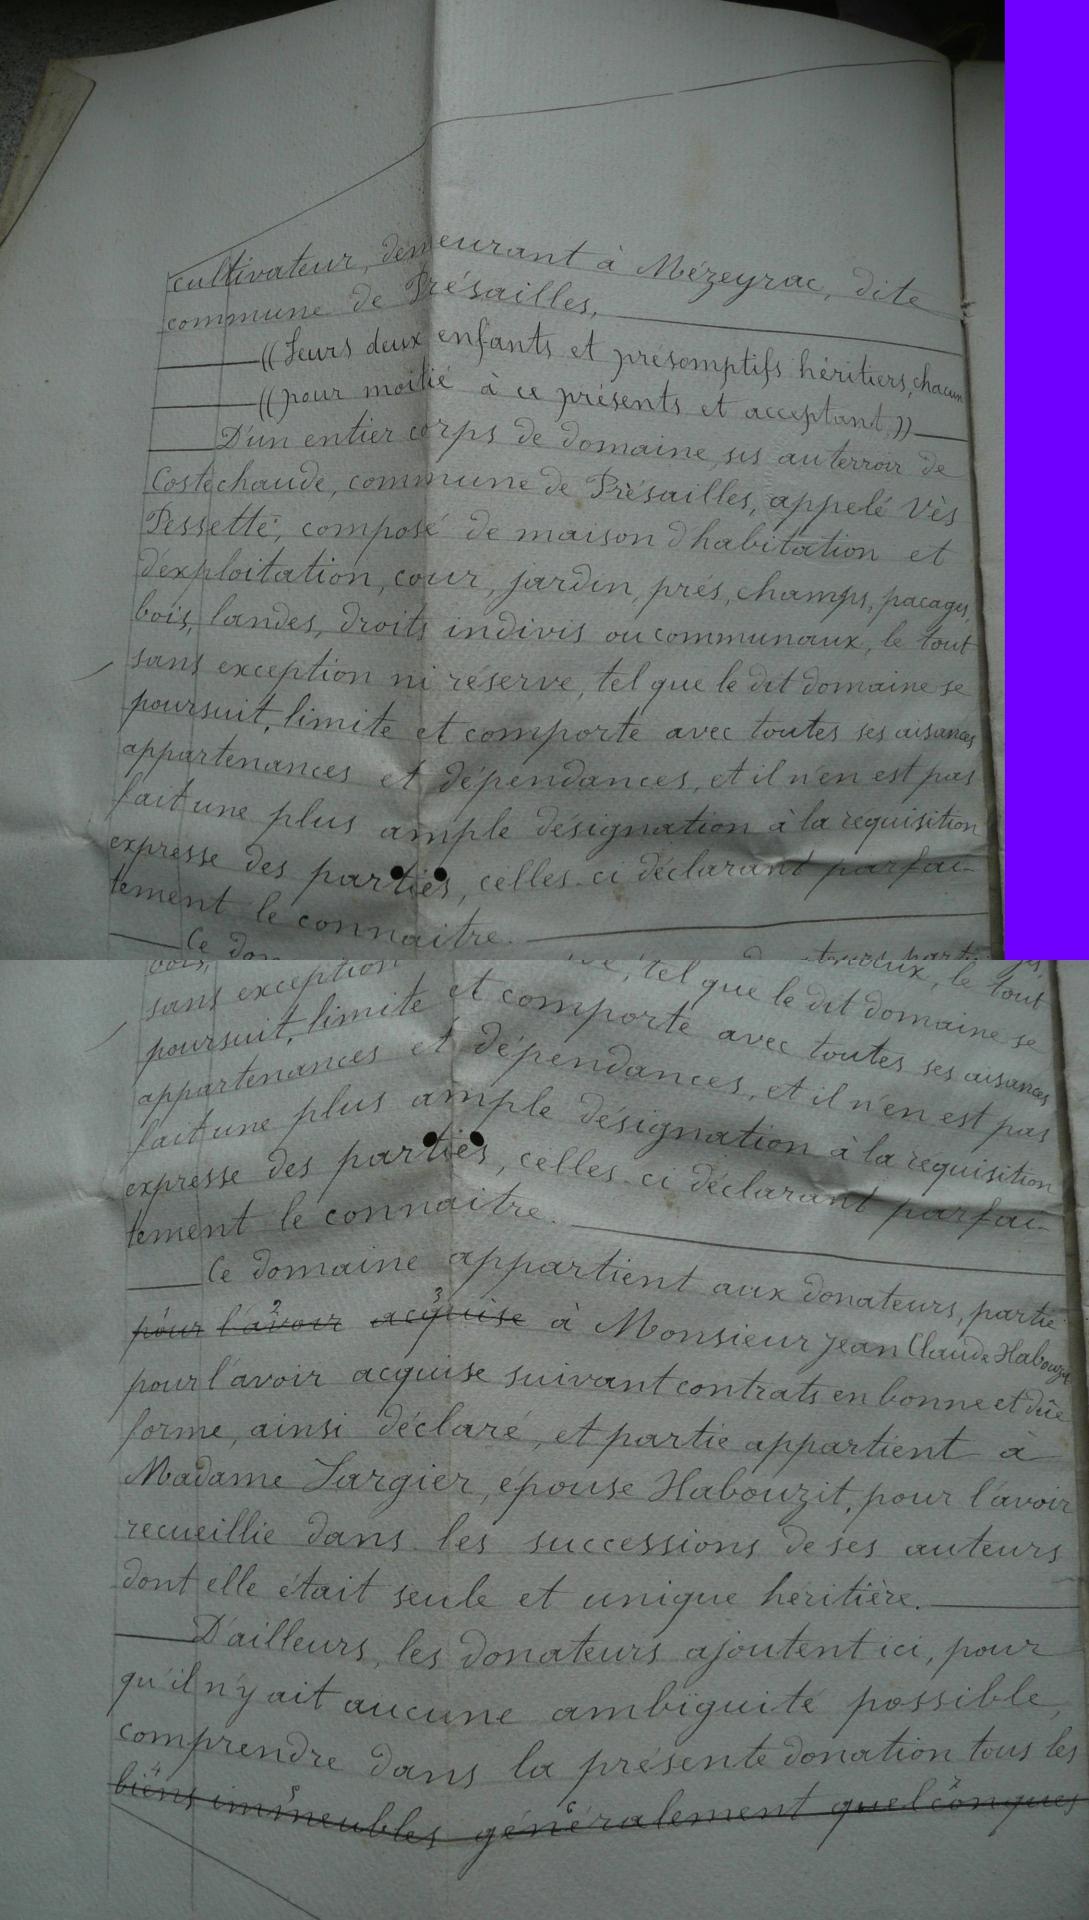 cultivateur, demeurant à Mézeyrac, dite
commune de Présailles,
((Leurs deux enfants et présomptifs héritiers, chacun
((pour moitié à ce présents et acceptant,))
D'un entier corps de domaine sis au terroir de
Costechaude, commune de Présailles, appelé Vès
Pessette, composé de maison d'habitation et
d'exploitation, cour, jardin, prés, champs, pacages,
bois, landes, droits indivis ou communaux, le tout
sans exception ni réserve, tel que le dit domaine se
poursuit, limite et comporte avec toutes ses aisances
appartenances et dépendances, et il n'en est pas
fait une plus ample désignation à la réquisition
expresse des parties, celles-ci déclarant parfai-
tement le connaitre.
Ce dom
bois, le tout
sans exception tel que le dit domaine se
poursuit, limite et comporte avec toutes ses aisances
appartenances et dépendances, et il n'en est pas
fait une plus ample désignation à la requisition
expresse des parties, celles-ci déclarant parfai-
tement le connaitre.
Ce domaine appartient aux donateurs, partie
pour l'avoir acquise à Monsieur Jean Claude Habouzit
pour l'avoir acquise suivant contrats en bonne et dûe
forme, ainsi déclaré, et partie appartient à
Madame Largier, épouse Habouzit, pour l'avoir
recueillie dans les successions de ses auteurs
dont elle était seule et unique héritière.
D'ailleurs, les donateurs ajoutent ici, pour
qu'il n'y ait aucune ambiguité possible,
comprendre dans la présente donation tous les
biens immeubles généralement quelconques